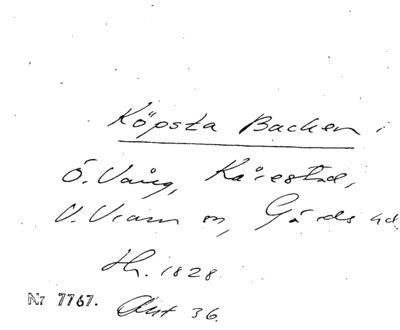 Köpsta Backen
Ö. Vång, Kårestad,
V. Vram sn, Gärds hd
Hr. 1828
Nr 7767. Akt 36.